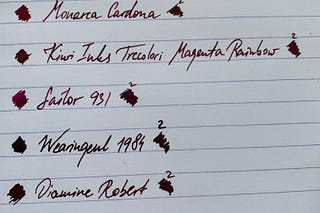 Monarca Cardona 2
Kiwi Inks Trecolori Magenta Rainbow 2
Sailor 931 2
Wearingeul 1984 2
Diamine Robert 2